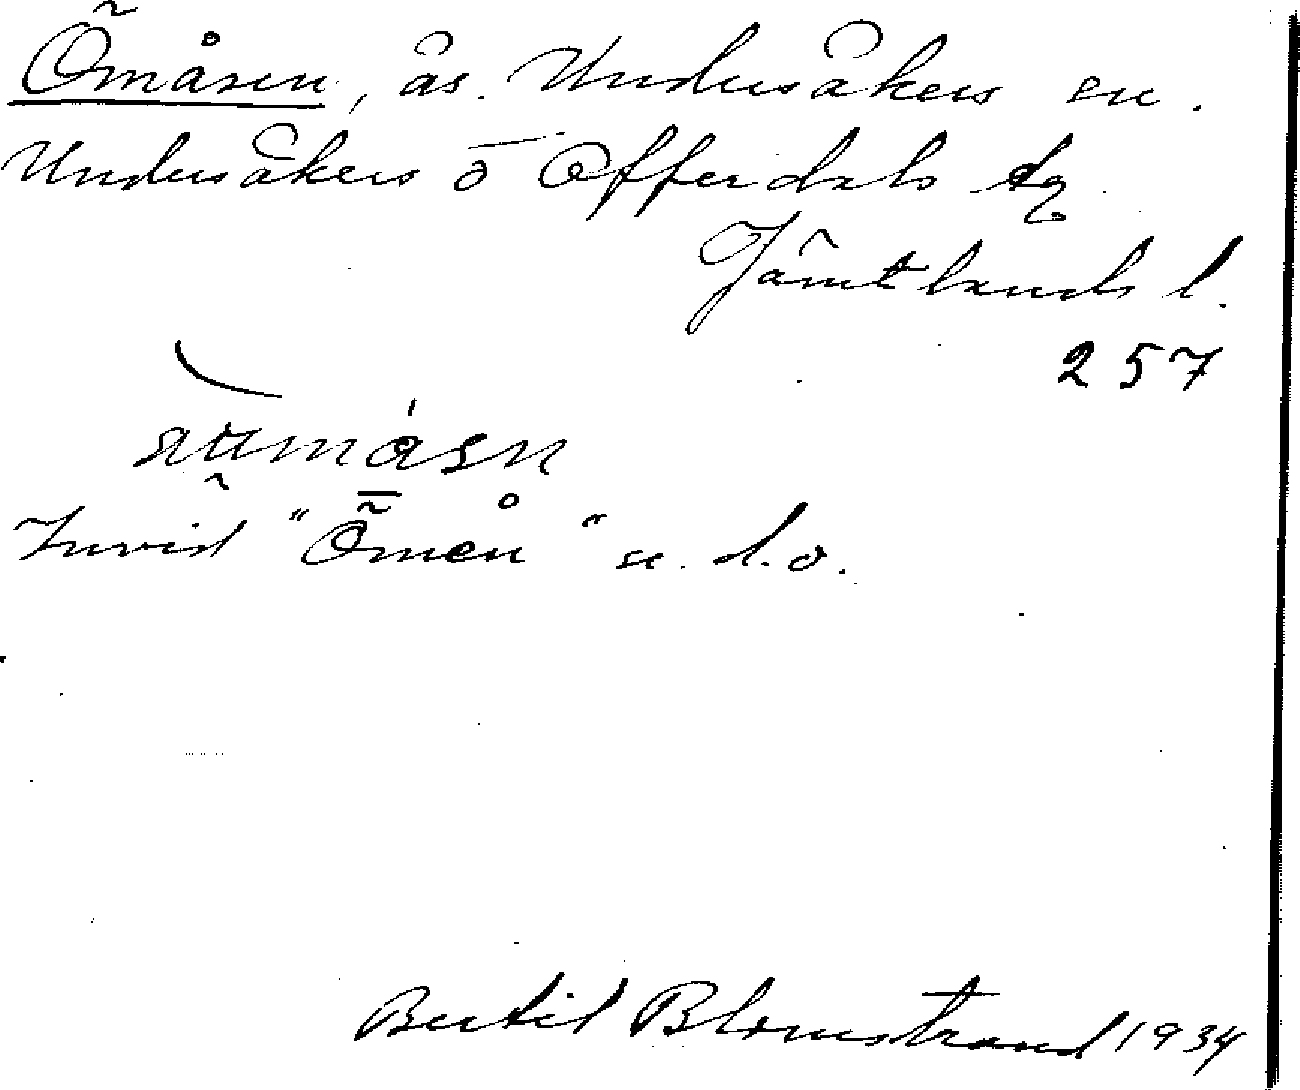 Ömåsen, ås. Undersåkers sn.
Undersåkers o Offerdals tg
Jämtlands l.
257
Invid "Ömån" se. d. o.
Bertil Blomstrand 1934